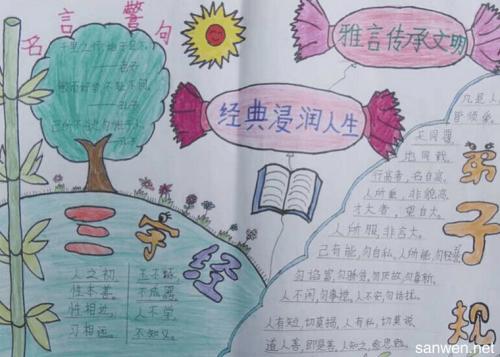 名言警句
千里之行,始于足下。
——老子
敏而好学,不耻下问。
——孔子
己所不欲,勿施于人。
——孔子
雅言传承文明
经典浸润人生
三字经
人之初
性本善。
性相近,
习相远。
玉不琢
不成器
人不学
不知义。
弟子规
凡是人
皆须爱。
天同覆,
地同载。
行高者,名自高,
人所重,非貌高。
才大者,望自大。
人所服,非言大。
己有能,勿自私。人所能,勿轻訾。
勿谄富,勿骄贫。勿厌故,勿喜新。
人不闲,勿事搅。人不安,勿话扰。
人有短,切莫揭,人有私,切莫说,
道人善,即是善,人知之,愈思勉。
sanwen.net